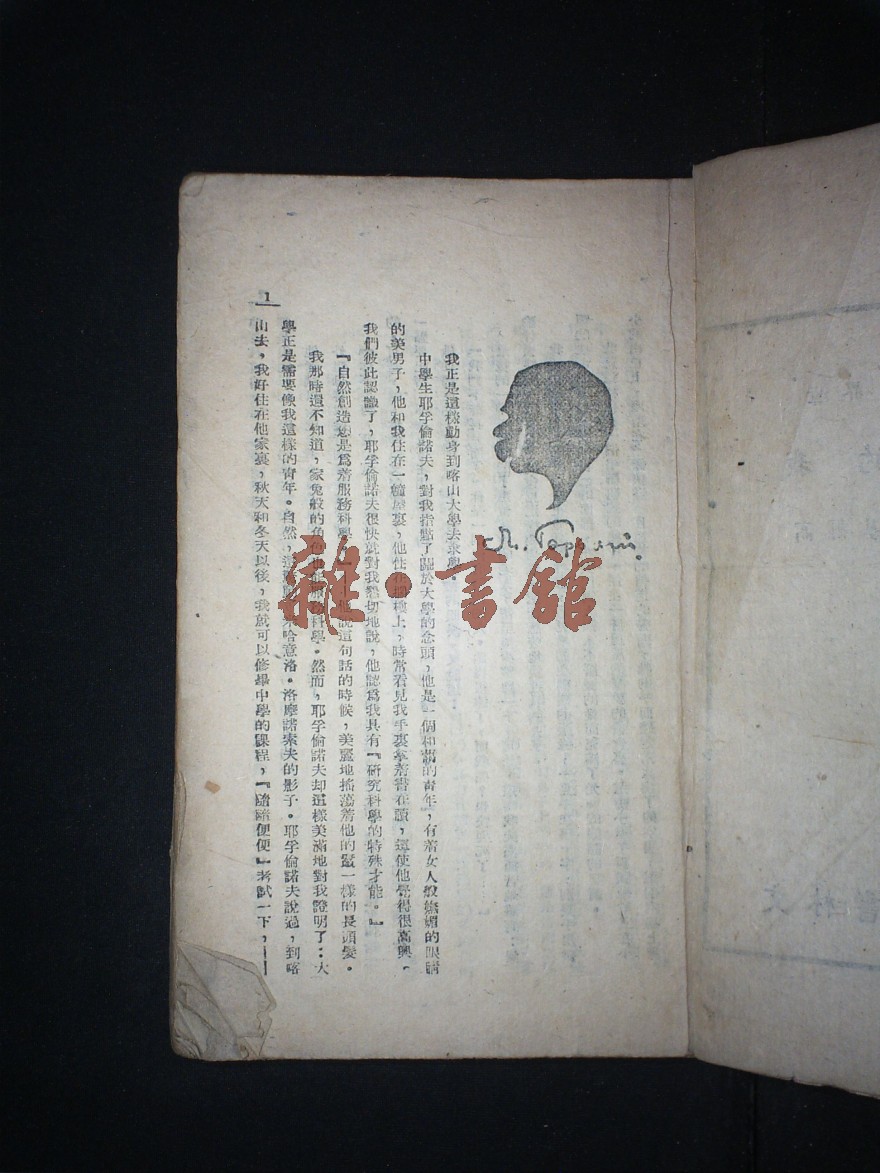 我正是這樣動身到喀山大學去求學
中學生耶孚倫諾夫，對我指點了關於大學的念頭，他是一個和藹的青年，有着女人般嫵媚的眼睛
的美男子，他和我住在一幢屋裏，他住在樓上，時常看見我手裏拿着書在讀，這使他覺得很高興。
我們彼此認識了，耶孚倫諾夫很快就對我熱切地說，他認爲我具有『研究科學的特殊才能。』
『自然創造您是爲着服務科學 他說這句話的時候，美麗地搖蕩着他的鬃一樣的長頭髮。
我那時還不知道，家兔般的角色也能服務科學。然而，耶孚倫諾夫却這樣美滿地對我證明了：大
學正是需要像我這樣的青年。自然， 哈意洛。洛摩諾索夫的影子。耶孚倫諾夫說過，到喀
山去，我好住在他家裏，秋天和冬天以後，我就可以修畢中學的課程，『隨隨便便』考試一下，——
1
雜·書館